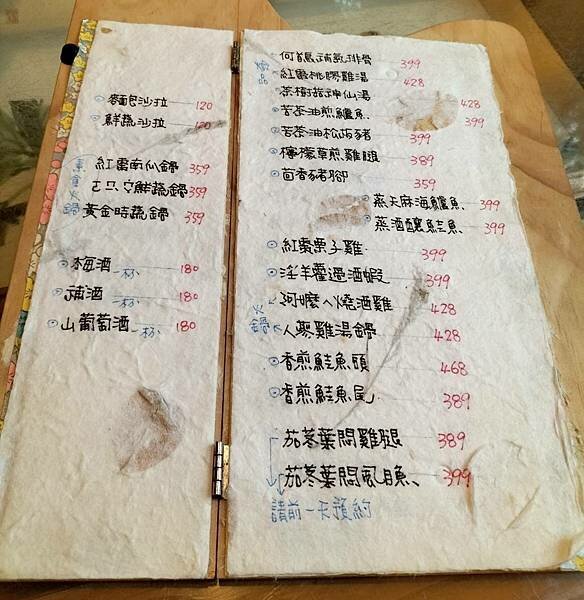 麵包沙拉 120
鮮蔬沙拉 120
素食火鍋
紅棗南仙鍋 359
ㄜ只ㄜ鮮蔬鍋 359
黃金時蔬鍋 359
梅酒 一杯 180
補酒 一杯 180
山葡萄酒 一杯 180
何首烏補氣排骨 399
紅棗桃膠雞湯 428
茶樹菇神仙湯 428
苦茶油煎鱸魚 399
苦茶油松阪豬 399
檸檬草煎雞腿 389
茴香豬腳 359
蒸天麻海鱸魚 399
蒸酒釀鮭魚 399
紅棗栗子雞 399
淫羊藿過酒蝦 399
火鍋
阿嬤ㄟ燒酒雞 428
人蔘雞湯鍋 428
香煎鮭魚頭 468
香煎鮭魚尾 389
茄苳葉悶雞腿 389
茄苳葉悶虱目魚 399
請前一天預約